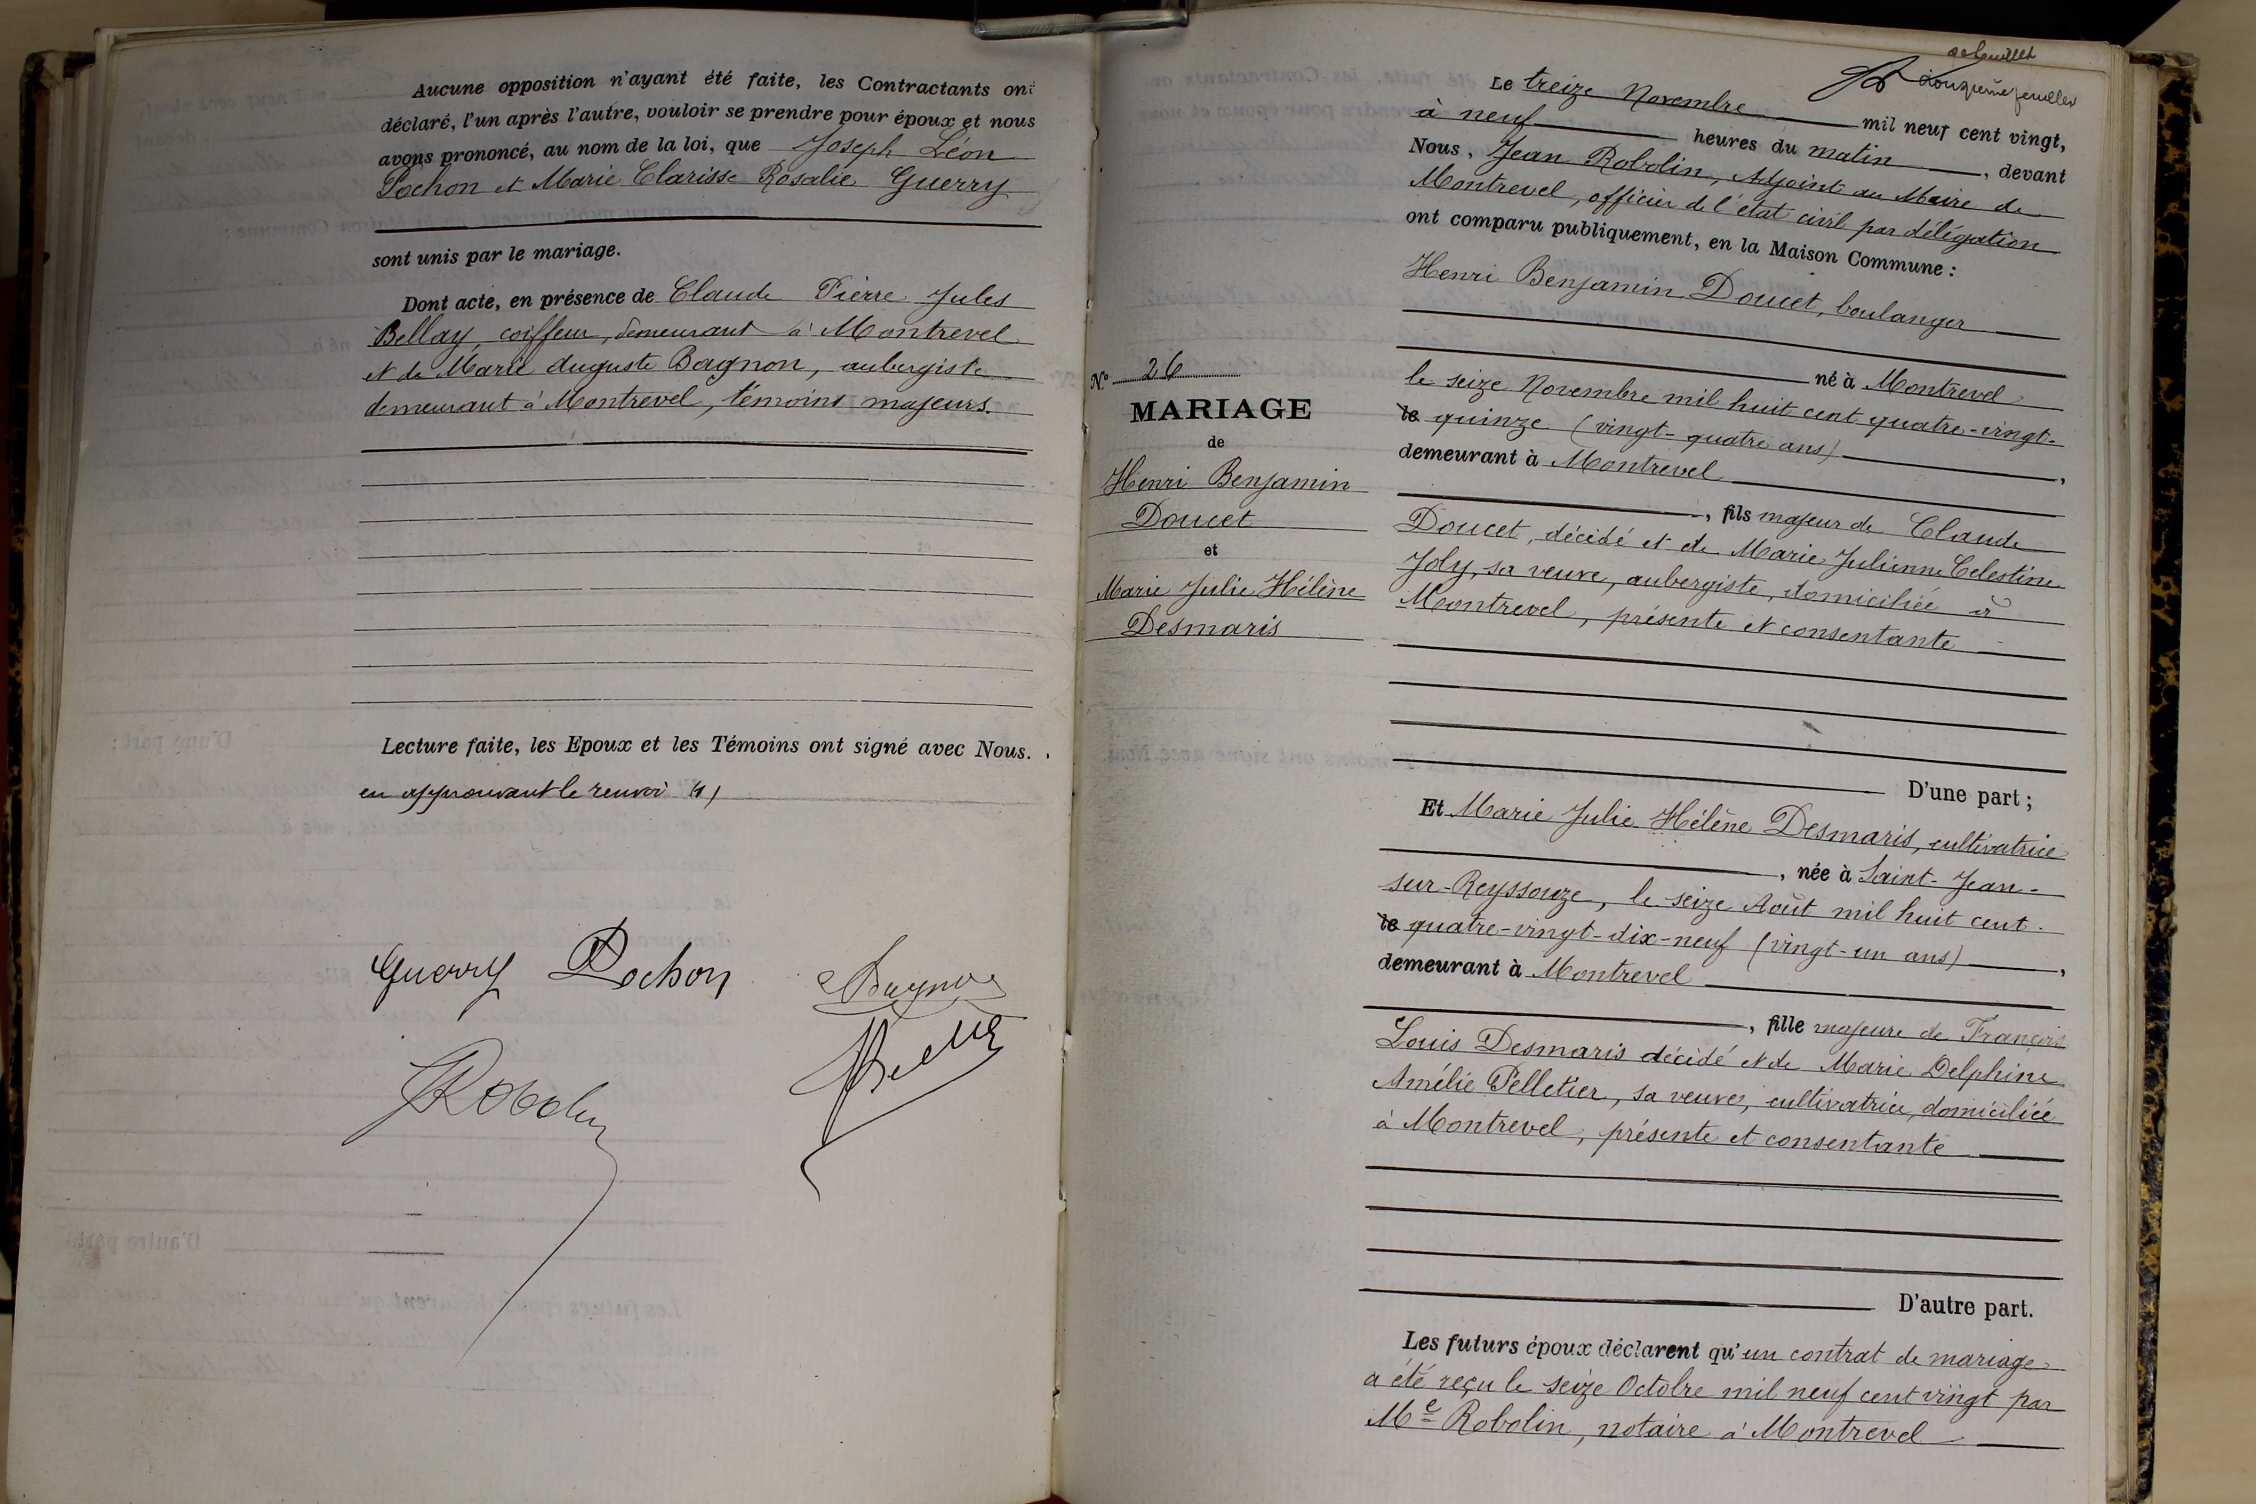 Aucune opposition n'ayant été faite, les Contractants ont
déclaré, l'un après l'autre, vouloir se prendre pour époux et nous
avons prononcé, au nom de la loi, que Joseph Léon
Pochon et Marie Clarisse Rosalie Guerry
sont unis par le mariage.
Dont acte, en présence de Claude Pierre Jules
Bellay, coiffeur, demeurant à Montrevel
et de Marie Auguste Bagnon, aubergiste
demeurant à Montrevel, témoins majeurs.
Lecture faite, les Epoux et les Témoins ont signé avec Nous.
en approuvant le renvoi
Guerry Pochon
JRobolin
N° 26
MARIAGE
de
Henri Benjamin
Doucet
et
Marie Julie Hélène
Desmaris
feuillet
douzième feuillet
Le treize Novembre mil neuf cent vingt,
à neuf heures du matin, devant
Nous, Jean Robolin, Adjoint au Maire de
Montrevel, officier de l'état civil par délégation
ont comparu publiquement, en la Maison Commune :
Henri Benjamin Doucet, boulanger
né à Montrevel
le seize Novembre mil huit cent quatre-vingt-
le quinze (vingt-quatre ans)
demeurant à Montrevel,
, fils majeur de Claude
Doucet, décédé et de Marie Julienne Celestine
Joly, sa veuve, aubergiste, domiciliée à
Montrevel, présente et consentante
D'une part ;
Et Marie Julie Hélène Desmaris, cultivatrice
, née à Saint-Jean-
sur-Reyssouze, le seize Août mil huit cent
le quatre-vingt-dix-neuf (vingt-un ans),
demeurant à Montrevel
, fille majeure de François
Louis Desmaris décédé et de Marie Delphine
Amélie Pelletier, sa veuve, cultivatrice, domiciliée
à Montrevel, présente et consentante
D'autre part.
Les futurs époux déclarent qu'un contrat de mariage
a été reçu le seize Octobre mil neuf cent vingt par
Me Robolin, notaire à Montrevel